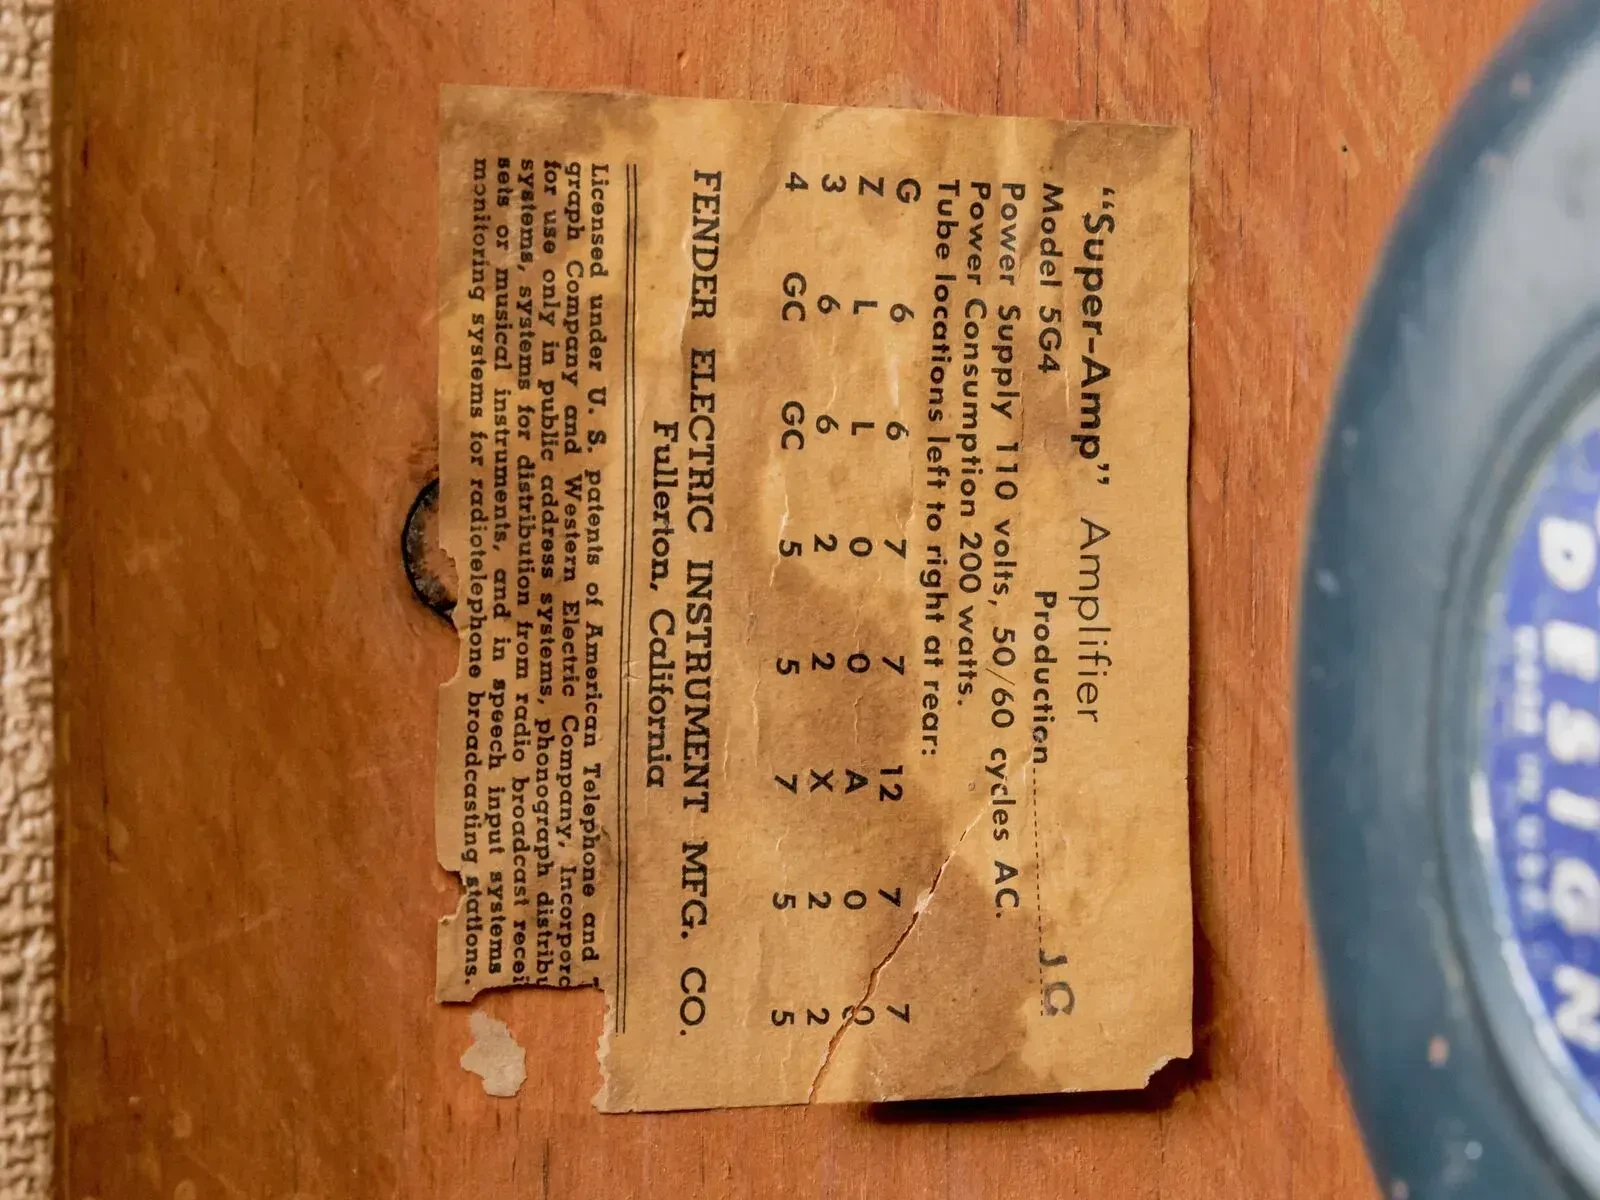 “Super-Amp” Amplifier
Model 5G4 Production
Power Supply 110 volts, 50/60 cycles AC.
Power Consumption 200 watts.
Tube locations left to right at rear:
G 6 6 7 7 12 7 7
Z L L 0 0 A 0 0
3 6 6 2 2 X 2 2
4 GC GC 5 5 7 5 5
FENDER ELECTRIC INSTRUMENT MFG. CO.
Fullerton, California
Licensed under U. S. patents of American Telephone and T
graph Company and Western Electric Company, Incorpora
for use only in public address systems, phonograph distribu
systems, systems for distribution from radio broadcast recei
sets or musical instruments, and in speech input systems
monitoring systems for radiotelephone broadcasting stations.
DESIGN
MADE IN U.S.A.